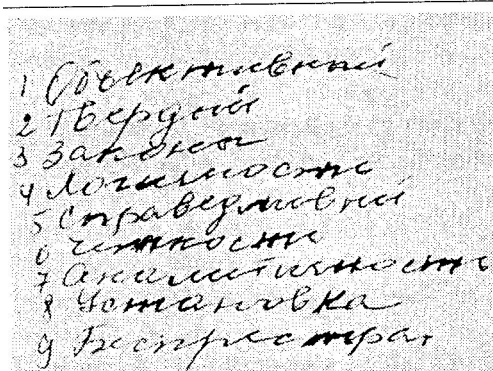 1 Объективный
2 Твердый
3 Закона
4 Логичность
5 Справедливый
6 Четкость
7 Аналитичность
8 Установка
9 Беспристра.